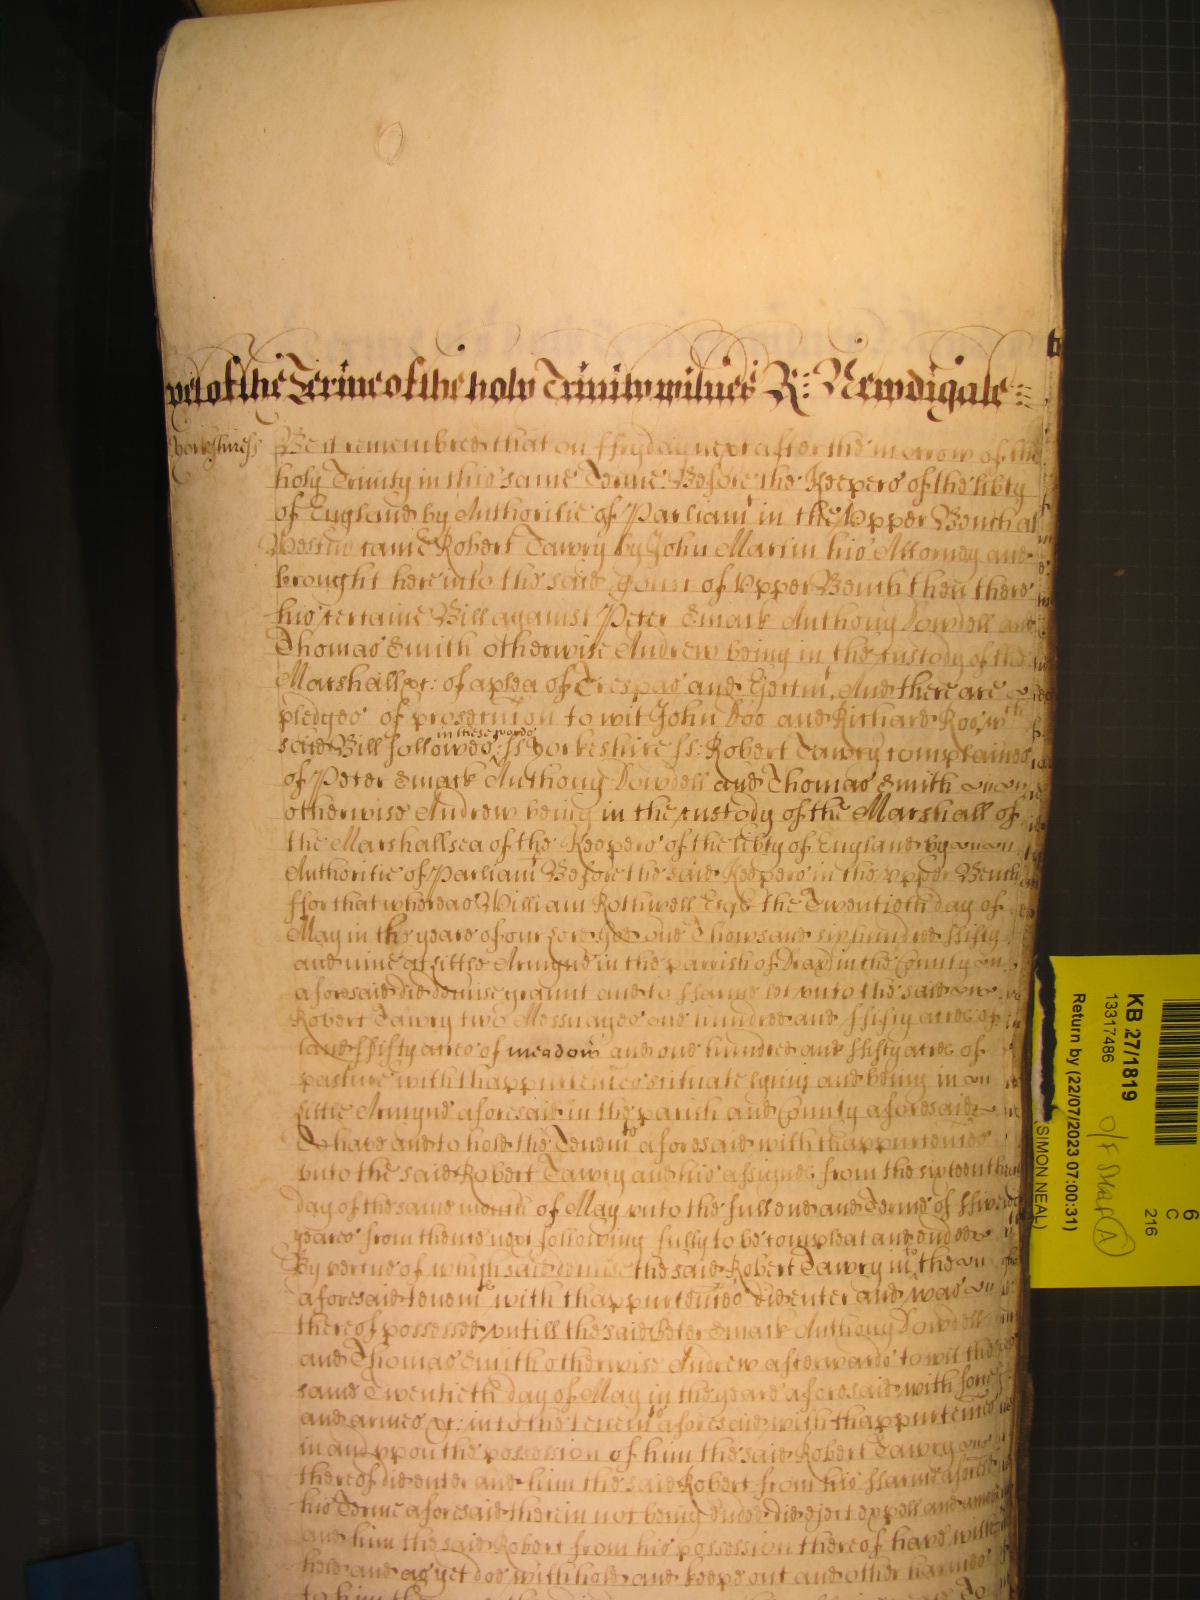 yet of the Terme of the holy Trinity witnes R: Newdigate
Yorkshire ss Be it remembred that on ffryday next after the morrow of the
holy Trinity in this same Terme Before the Keepers of the libty
of England by Authoritie of Parliamt in the Vpper Bench at
Westmr came Robert Tawry by John Martin his Attorney and
brought here into the said Court of Vpper Bench then there
his certaine Bill against Peter Smark Anthony Dowdell and
Thomas Smith otherwise Andrew being in the custody of the
Marshall &c: of a plea of Trespas and Ejectmt And there are
pledges of prosecution to wit John Doo and Richard Roo wch
said Bill followes in these words ss Yorkeshire ss: Robert Tawry complaines
of Peter Smark Anthony Dowdell and Thomas Smith
otherwise Andrew being in the custody of the Marshall of
the Marshallsea of the Keepers of the libty of England by
Authoritie of Parliamt Before the said Keepers in the vpper Bench
ffor that whereas William Rothwell Esqr the Twentieth day of
May in the yeare of our Lord God one Thowsand six hundred ffifty
and nine at little Armyne in the parrish of Drax in the County
aforesaid did demise graunt and to ffarme let vnto the said
Robert Tawry two Messuages one hundred and ffifty acres of
land ffifty acres of meadow and one hundred and ffifty acres of
pasture with thappurtennces situate lying and being in
little Armyne aforesaid in the parish and County aforesaid
To have and to hold the Tenemts aforesaid with thappurtennces
vnto the said Robert Tawry and his assignes from the sixteenth
day of the same month of May vnto the full end and Terme of ffive
yeares from thence next following fully to be compleat and ended
By vertue of which said demise the said Robert Tawry into the
aforesaid tenemts with thappurtennces did enter and was
thereof possessed vntill the said Peter Smark Anthony Dowdell
and Thomas Smith otherwise Andrew afterwards to wit the
same Twentieth day of May in the yeare aforesaid with force
and armes &c: into the tenemts aforesaid with thappurtennces
in and vpon the possession of him the said Robert Tawry
thereof did enter and him the said Robert from his ffarme aforesaid
his Terme aforesaid therein not being ended did eject expell and amove
and him the said Robert from his possession thereof have with
held and as yet doe withhold and keepe out and other harmes
to him
KB 27/1819
13317486
Return by (22/07/2023 07:00:31)
(SIMON NEAL)
O/F Map A
6
C
216